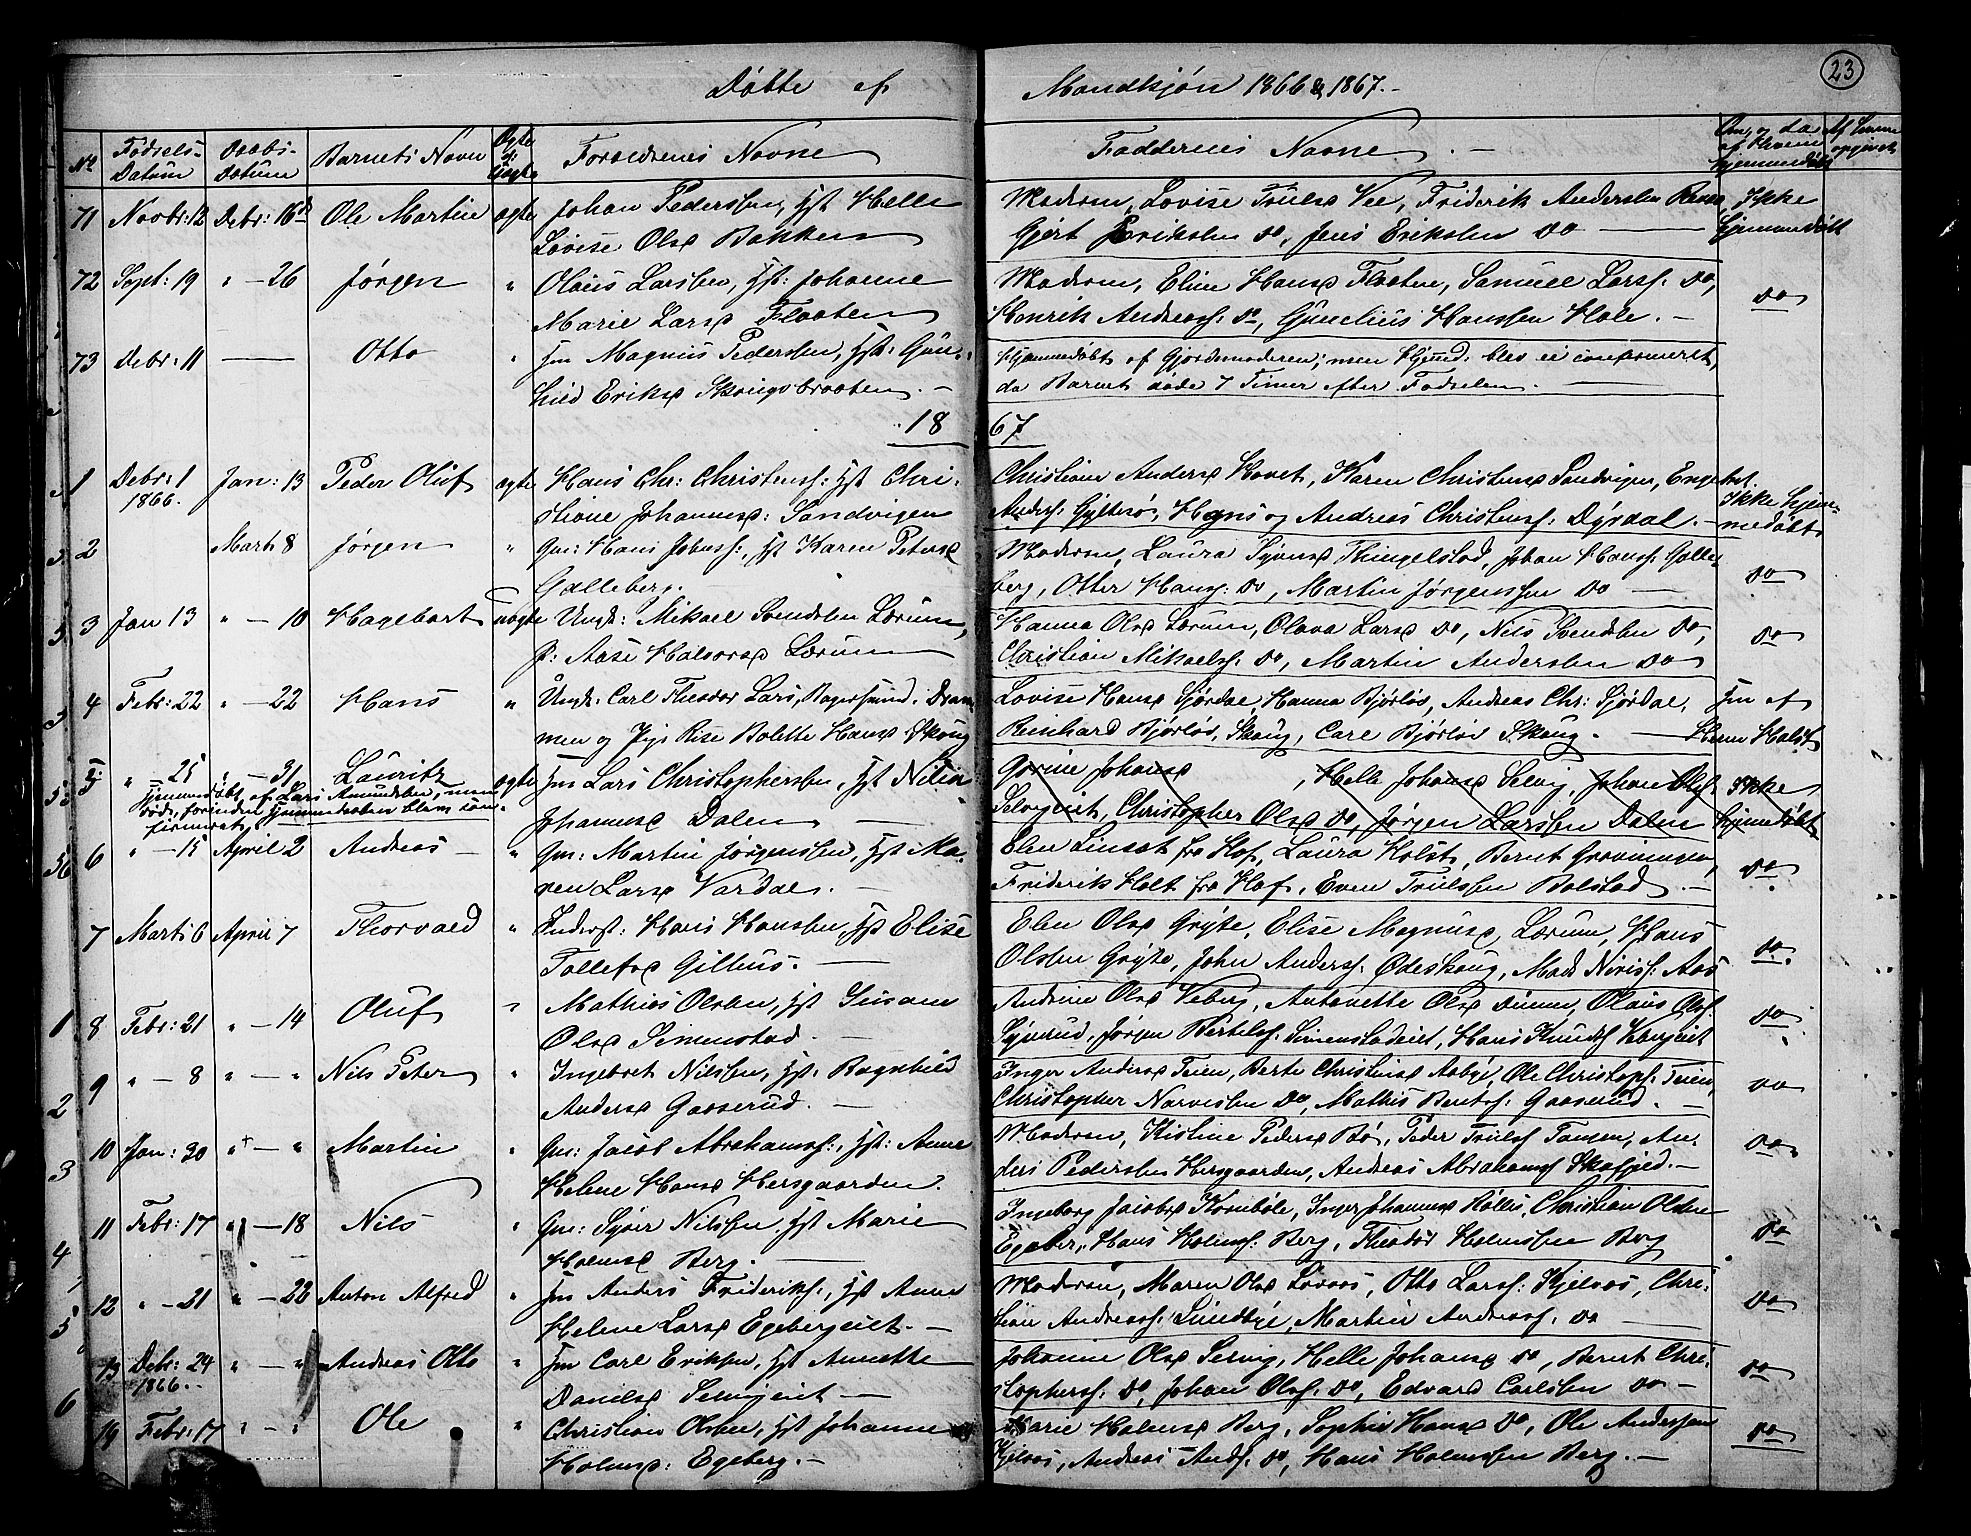 23
Døbte af Mandkjøn 1866 & 1867.-
No Fødsels-Datum Daabs-Datum Barnets Navn Ægte el. Uægte Forældrenes Navne
Faddernes Navne
71 Novbr: 12 Debr: 16d Ole Martin ægte Johan Pederssen, Hst Helle
Lovise Olsd Bakken
Moderen, Lovise Truls Vee, Friderik Anderssen
Gjert Erikssen do, Jens Erikssen do
Ikke
hjemmedøbt
72 Sept: 19 " - 26 Jørgen " Olaus Larssen, Hst: Johanne
Marie Larsd Flaaten
Moderen, Eline Hansd Flaaten, Samuel Larss. do,
Henrik Andreass. do, Gunelius Hanssen Hole. -
do
73 Debr: 11 Otto " Hm Magnus Pederssen, Hst: Gun-
hild Eriksd Skougsbraaten. -
Hjemmedøbt af Gjordemoderen; men Hjemd. blev ei confirmeret,
da Barnet døde 7 Timer efter Fødselen.
18 67
1 Debr: 1 1866. Jan: 13 Peder Oluf ægte Hans Chr: Christenss: Hst Chri-
stiane Johannesd: Sandvigen
Christiane Andersd Hovet, Karen Christensd Sandvigen, Engebret
Anderss. Gyltesø, Hans og Andreas Christenss. Dyrdal. -
Ikke hjem-
medøbt
2 Marts 8 Jørgen " Gm: Hans Johnss:, Hst Karen Petersd
Galleberg.
Moderen, Laura Syversd Thingelstad, Johan Hanss. Galle-
berg, Otter Hans: do, Martin Jørgenssen do
do
3 Jan 13 " - 10 Hagebart uægte Ungk: Mikael Svendsen Lærum,
P: Aase Halvorsd Lærum
Hanna Olsd Lærum, Olava Larsd do, Nils Svendsen do,
Christian Mikaels. do, Martin Anderssen do
do
4 Febr: 22 " - 22 Hans " Ungk: Carl Theodor Lars, Dram-
men og Pige Rise Bolette Hansd Skoug
Lovise Hansd Fjørdal, Hanna Bjørløv, Andreas Chr: Fjørdal,
Reinhard Bjørløv, Skoug, Carl Bjørløv Skoug.
5 " 25 " - 31 Lauritz ægte Hm Lars Christopherssen, Hst
Johannesd Dalen
Hjemmedøbt af Lars Amundsen, men
døde, forinden Hjemmedaaben blev con-
firmeret
Gorine Johansd, Helle Johansd Selvig, Johan Olss.
Selvigeiet, Christopher Olsd do, Jørgen Larssen Dalen
Ikke
hjemmedøbt
6 " - 15 April 2 Andreas " Gm: Martin Jørgenssen, Hst Ma-
ren Larsd Vardal. -
Elen Linset fra Hof, Laura Holst, Bernt Grøvningen,
Friderik Holt fra Hof, Even Trulssen Bolstad. -
do
7 Marts 6 April 7 Thorvald " Inderst: Hans Hanssen, Hst Elise
Tollefsd Gilhus. -
Elen Olsd Gryte, Elise Magnusd, Lærum, Hans
Olssen Gryte, John Anderss. Ødeskoug, Mads Niriss. Aas
do.
8 Febr: 21 " - 14 Oluf " Mathias Olssen, Hst Susann
Olsd Simenstad.
Andrine Olsd Veberg, Antonette Olsd, Olaus Olss.
Syverud, Jørgen Bertelss. Simenstadeiet, Hans Knuds. Vebergeiet
do
9 " - 8 " - " Nils Peter " Ingebret Nilssen, Hst. Ragnhild
Andersd Gaaserud.
Inger Andersd Teien, Berte Christensd Aabye, Ole Christophs. Teien,
Christopher Narvessen do, Mathis Bentss. Gaaserud. -
do
10 Jan: 30 " - " Martin " Gm: Jacob Abrahamss:, Hst: Anne
Helene Hansd Hersgaarden.
Moderen, Kistine Pedersd Bø, Peder Truls Tangen, An-
ders Pederssen Hersgaarden, Andreas Abrahams Skafjed. -
do
11 Febr: 17 " - 18 Nils " Gm: Syver Nilssen, Hst Marie
Holmsd Berg.
Ingeborg Jacobsd Kornbøle, Inger Johannesd Røllis, Christian Olssen
Egeber, Hans Holmss. Berg, Theodor Holmssen Berg
do
12 " - 21 " - 22 Anton Alfred " Hm Anders Frideriks., Hst Anne
Helene Larsd Egebergeiet. -
Moderen, Maren Olsd Lovaas, Otto Larss. Kjelaas, Chri-
stian Andreass. Lundbye, Martin Andreass. do
do
13 Debr: 24 1866. " - " Andreas Otto " Hm Carl Erikssen, Hst Annette
Danielsd Selvigeiet -
Johanne Olsd Selvig, Helle Johansd do, Bernt Chri-
stopherss. do, Johan Olss. do, Edvard Carlssen do -
do
14 Febr: 17 " - " Ole " Christian Olssen, Hst Johanne
Holmsd: Egeberg. -
Marie Holmsd Berg, Sophie Hansd do, Ole Anderssen
Kjelaas, Andreas Ands. do, Hans Holmssen Berg. -
do